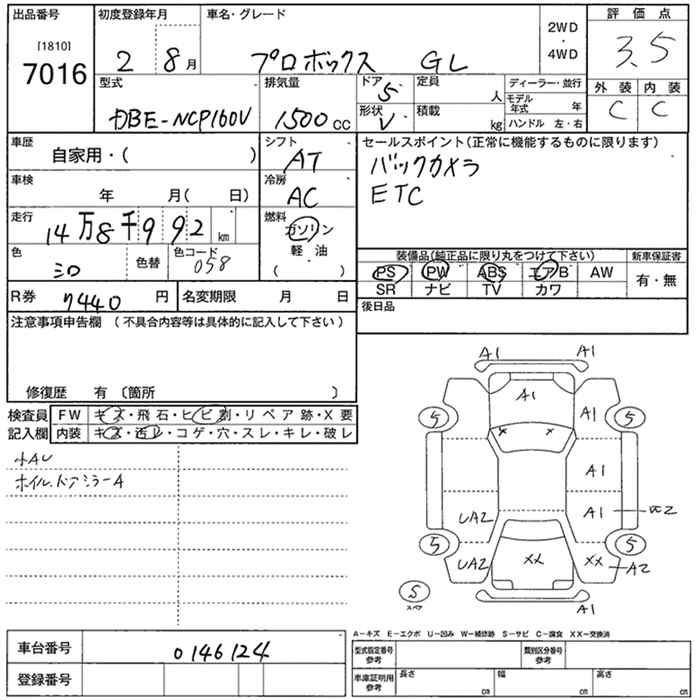 出品番号 初度登録年月 車名・グレード 2WD・4WD 評価点
[1810]
7016 2 8月 プロボックス GL 3.5
型式 排気量 ドア 5 定員 人 ディーラー・並行 外装 内装
DBE-NCP160V 1500cc 形状 V 積載 kg モデル年式 年 C C
ハンドル 左・右
車歴 自家用・( ) シフト AT セールスポイント(正常に機能するものに限ります)
車検 年 月( 日) 冷房 AC バックカメラ
ETC
走行 14万8千992km 燃料 ガソリン
軽・油
( )
色 シロ 色替 色コード 058 装備品(純正品に限り丸をつけて下さい) 新車保証書
PS PW ABS エアB AW 有・無
SR ナビ TV カワ
R券 7440円 名変期限 月 日 後日品
注意事項申告欄 (不具合内容等は具体的に記入して下さい)
修復歴 有 〔箇所 〕
検査員記入欄 FW キズ・飛石・ヒビ割・リペア跡・X要
内装 キズ・汚レ・コゲ・穴・スレ・キレ・破レ
小AU
ホイル、ドアミラーA
A1 A1
A1
5 A1 5
X X
A1
UA2 A1 XC2
5 5
UA2 XX XX A2
5 スペア
A1
A－キズ E－エクボ U－凹み W－補修跡 S－サビ C－腐食 XX－交換済
車台番号 0146124 型式指定番号 参考 類別区分番号 参考
登録番号 車庫証明用 参考 長さ cm 幅 cm 高さ cm